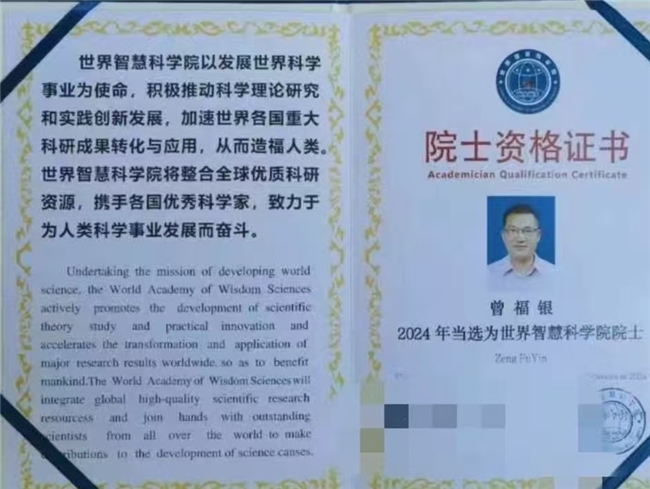 世界智慧科学院以发展世界科学
事业为使命，积极推动科学理论研究
和实践创新发展，加速世界各国重大
科研成果转化与应用，从而造福人类。
世界智慧科学院将整合全球优质科研
资源，携手各国优秀科学家，致力于
为人类科学事业发展而奋斗。
Undertaking the mission of developing world
science, the World Academy of Wisdom Sciences
actively promotes the development of scientific
theory study and practical innovation and
accelerates the transformation and application of
major research results worldwide, so as to benefit
mankind.The World Academy of Wisdom Sciences will
integrate global high-quality scientific research
resourcess and join hands with outstanding
scientists from all over the world to make
tributions to the development of science causes.
院士资格证书
Academician Qualification Certificate
曾福银
2024年当选为世界智慧科学院院士
Zeng FuYin